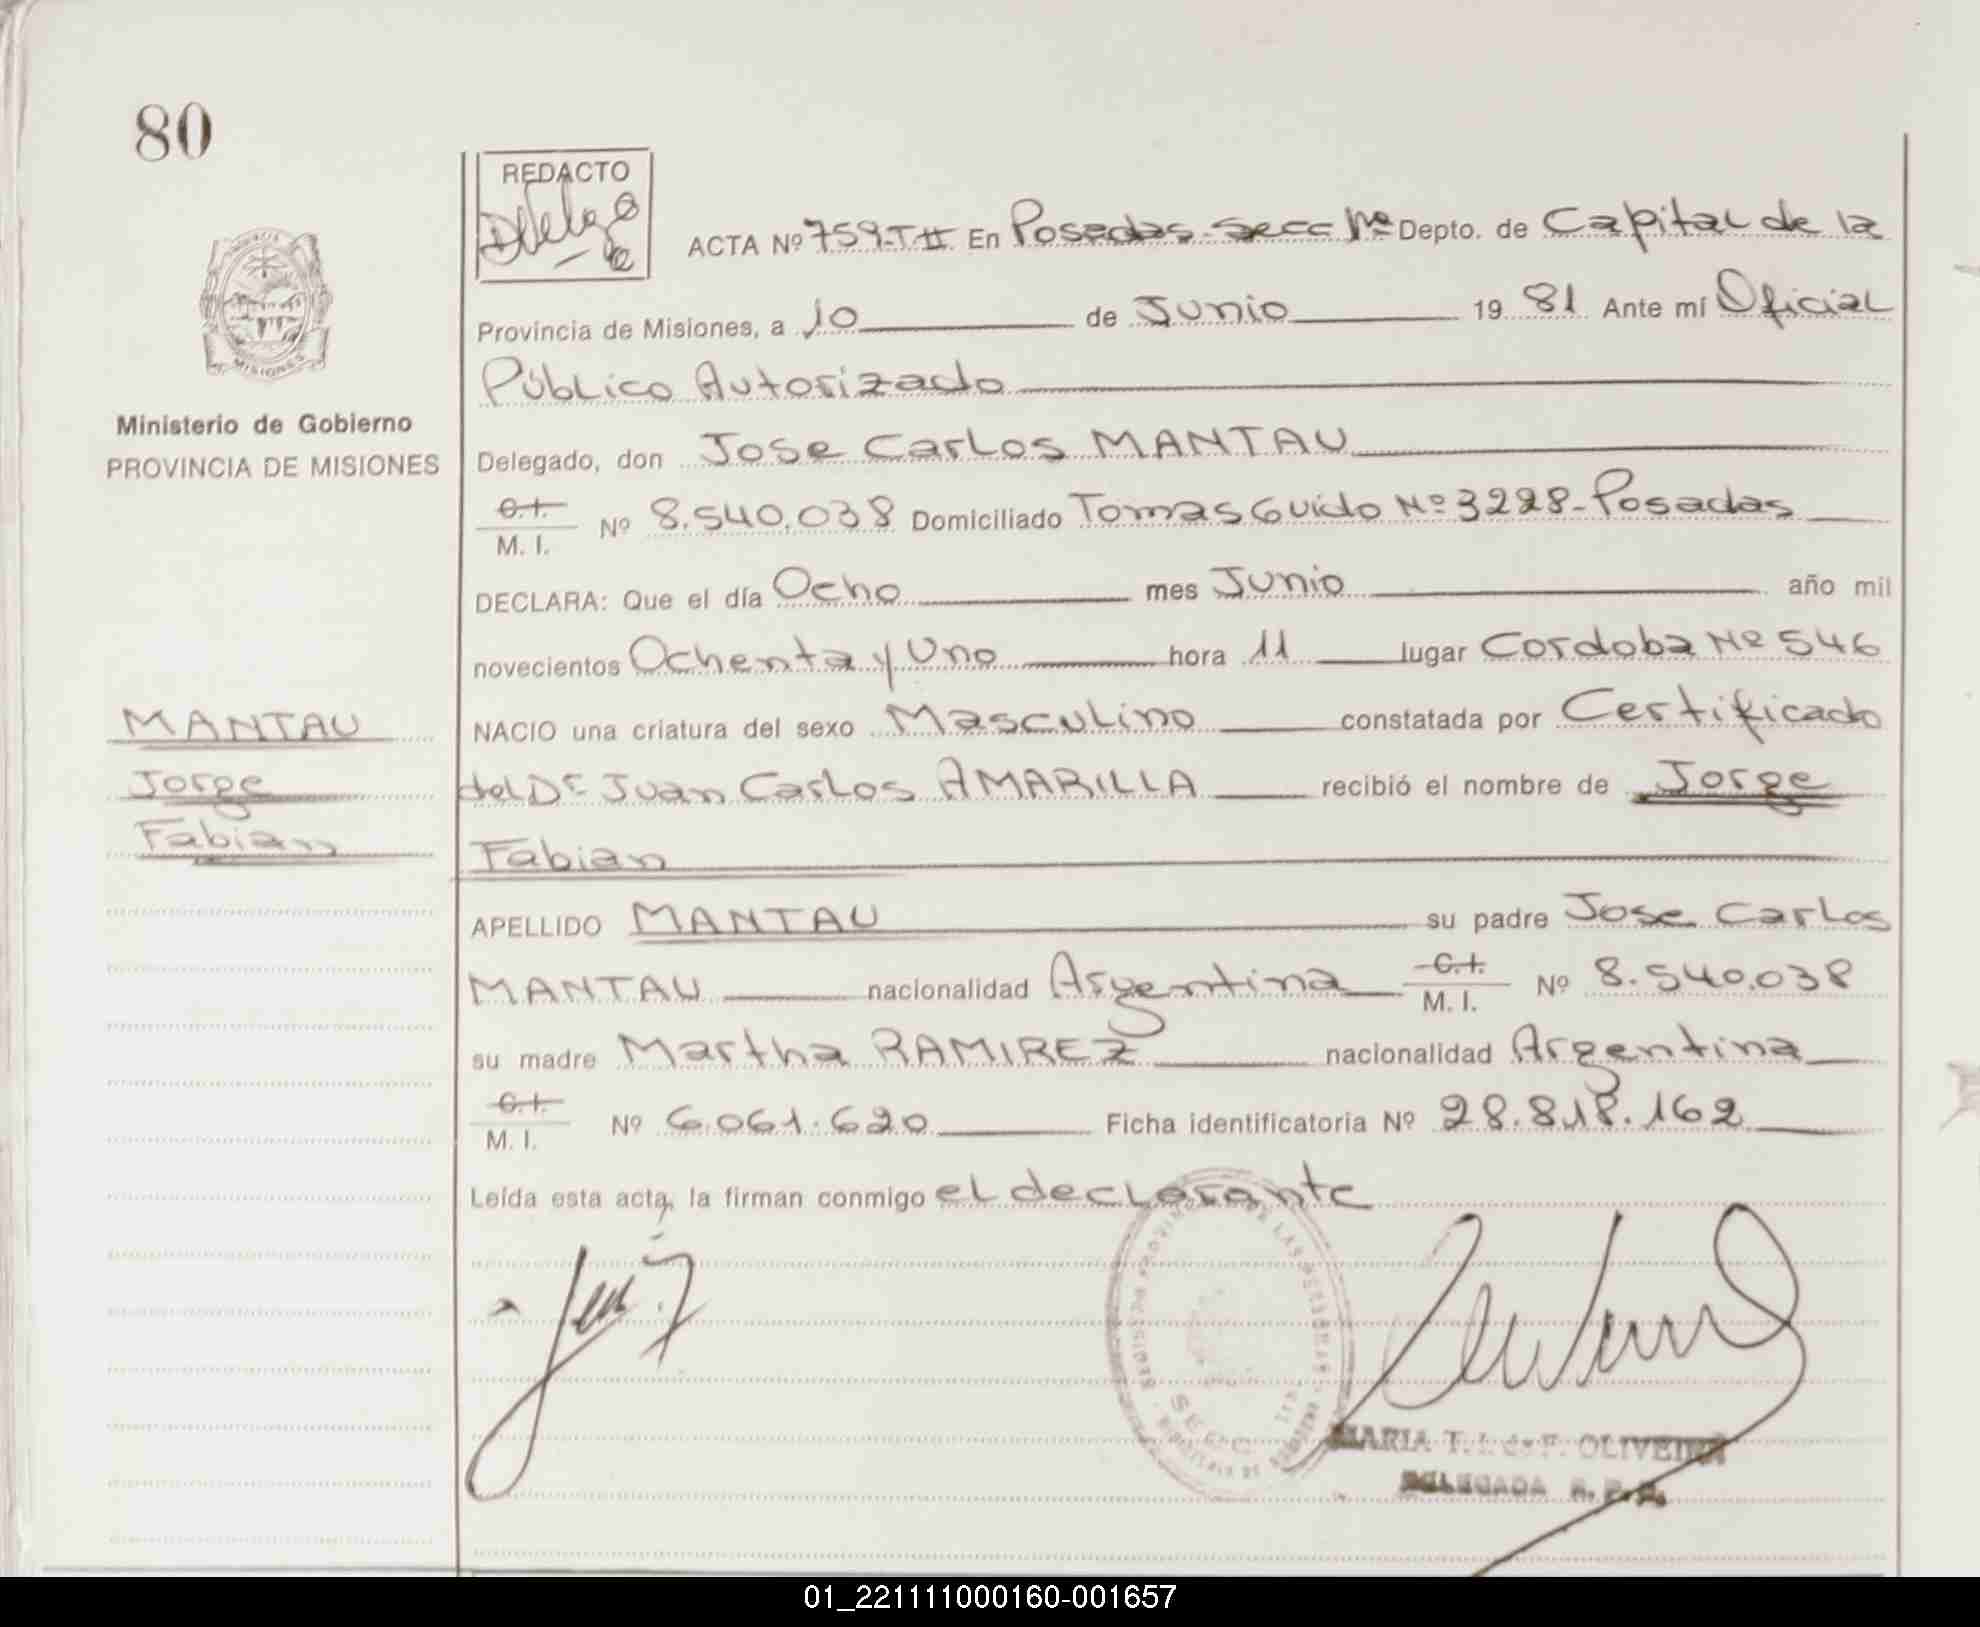 80
REDACTO
ACTA Nº 759-T II En Posedas-Secc 1ra Depto. de Capital de la
Provincia de Misiones, a 10 de Junio 1981 Ante mí Oficial
Público Autorizado
MISIONES
Ministerio de Gobierno
PROVINCIA DE MISIONES
Delegado, don Jose Carlos MANTAU
C.I.
M. I. Nº 8.540.038 Domiciliado Tomas Guido Nº 3228-Posadas
DECLARA: Que el día Ocho mes Junio año mil
novecientos Ochenta y Uno hora 11 lugar Cordoba Nº 546
MANTAU
Jorge
Fabian
NACIO una criatura del sexo Masculino constatada por Certificado
del Dr Juan Carlos AMARILLA recibió el nombre de Jorge
Fabian
APELLIDO MANTAU su padre Jose Carlos
MANTAU nacionalidad Argentina C.I.
M. I. Nº 8.540.038
su madre Martha RAMIREZ nacionalidad Argentina
C.I.
M. I. Nº 6.061.620 Ficha identificatoria Nº 28.818.162
Leída esta acta, la firman conmigo el declarante
MARIA T. OLIVEIRA
DELEGADA R. P. P.
01_221111000160-001657